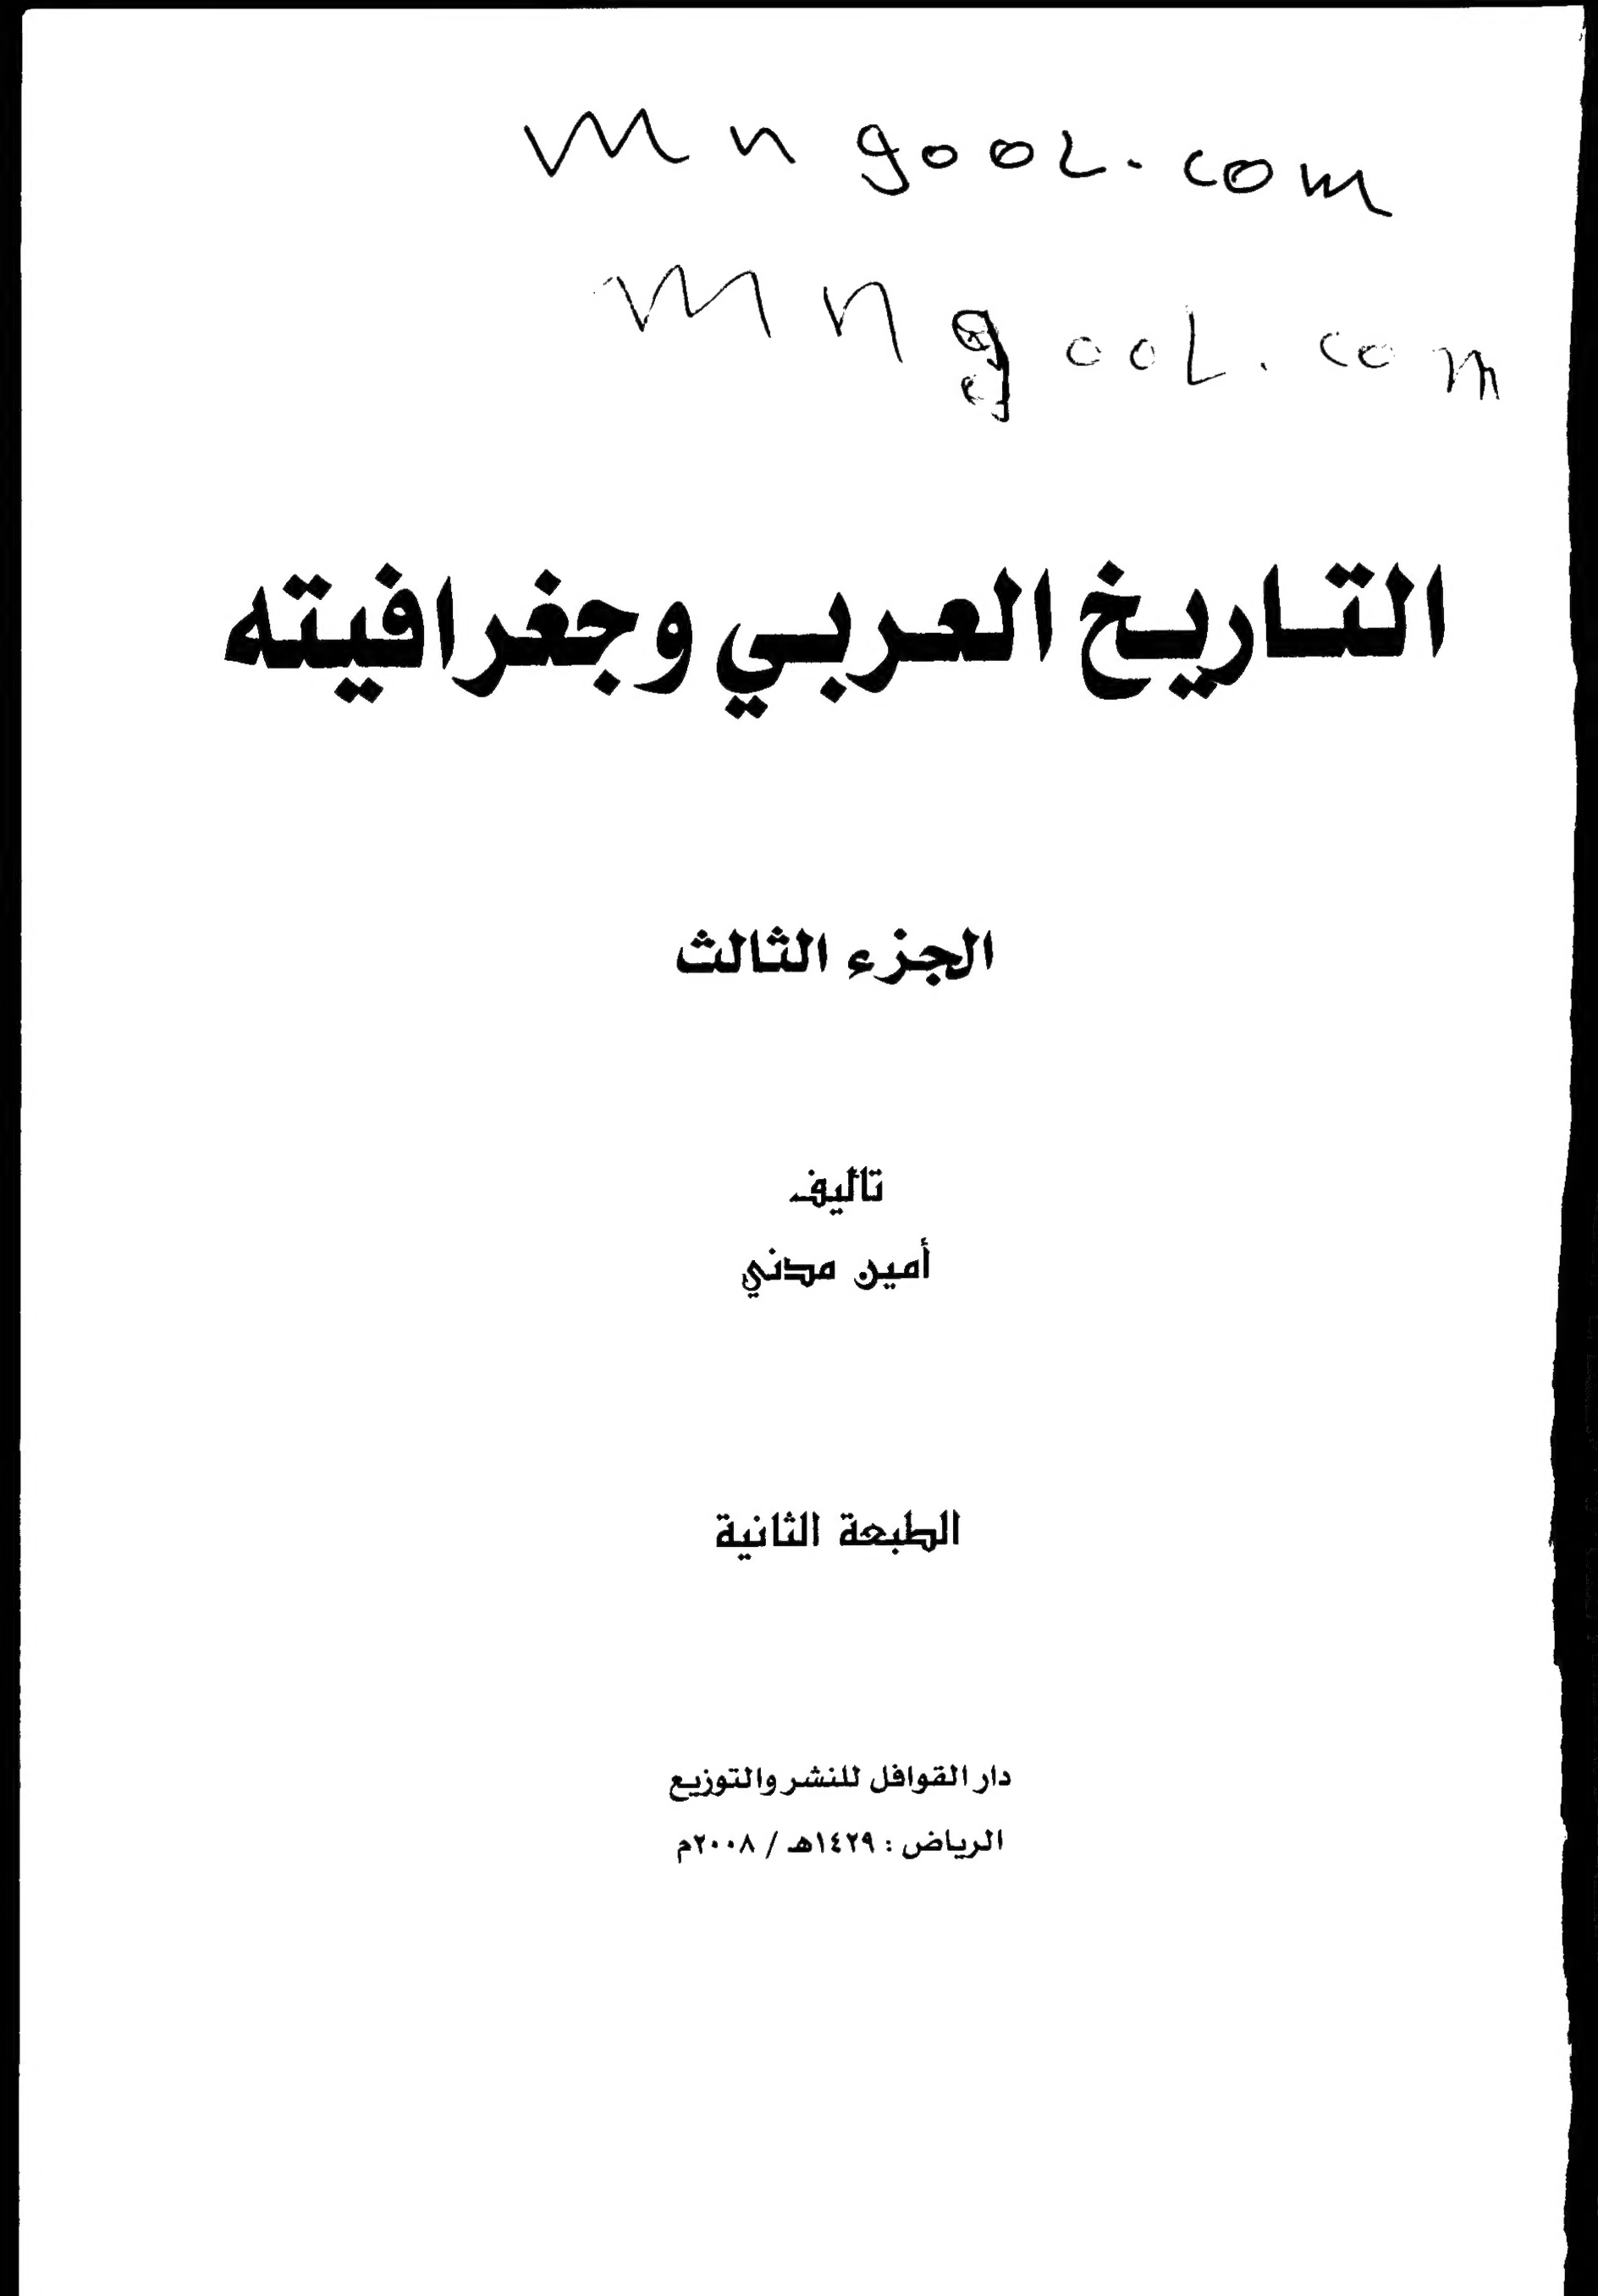 Mngool.com
Mngool.com
التاريخ العربي وجغرافيته
الجزء الثالث
تأليف
أمين مدني
الطبعة الثانية
دار القوافل للنشر والتوزيع
الرياض : ١٤٢٩هـ / ٢٠٠٨م